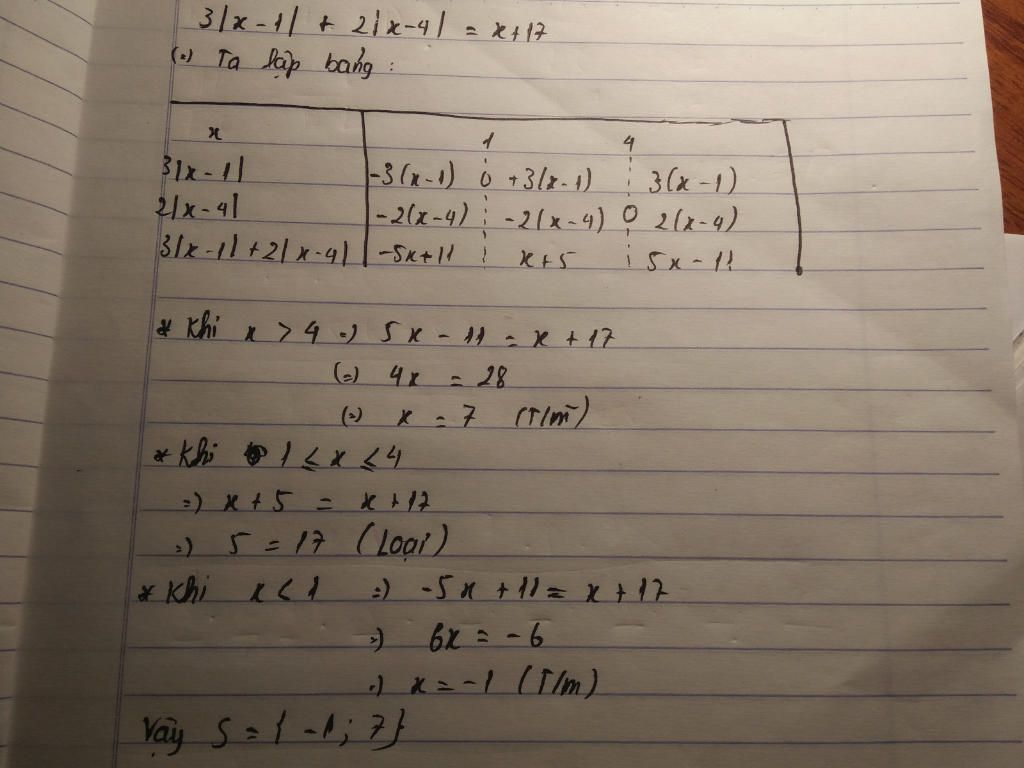 3|x-1| + 2|x-4| = x+17
(.) Ta lập bảng:
x 1 4
3|x-1| -3(x-1) 0 +3(x-1) 3(x-1)
2|x-4| -2(x-4) -2(x-4) 0 2(x-4)
3|x-1|+2|x-4| -5x+11 x+5 5x-11
* Khi x > 4 => 5x - 11 = x + 17
(=) 4x = 28
(=) x = 7 (T/m)
* Khi 1 ≤ x ≤ 4
=) x + 5 = x + 17
=) 5 = 17 (Loại)
* Khi x < 1 =) -5x + 11 = x + 17
=) 6x = -6
=) x = -1 (T/m)
Vậy S = { -1; 7}